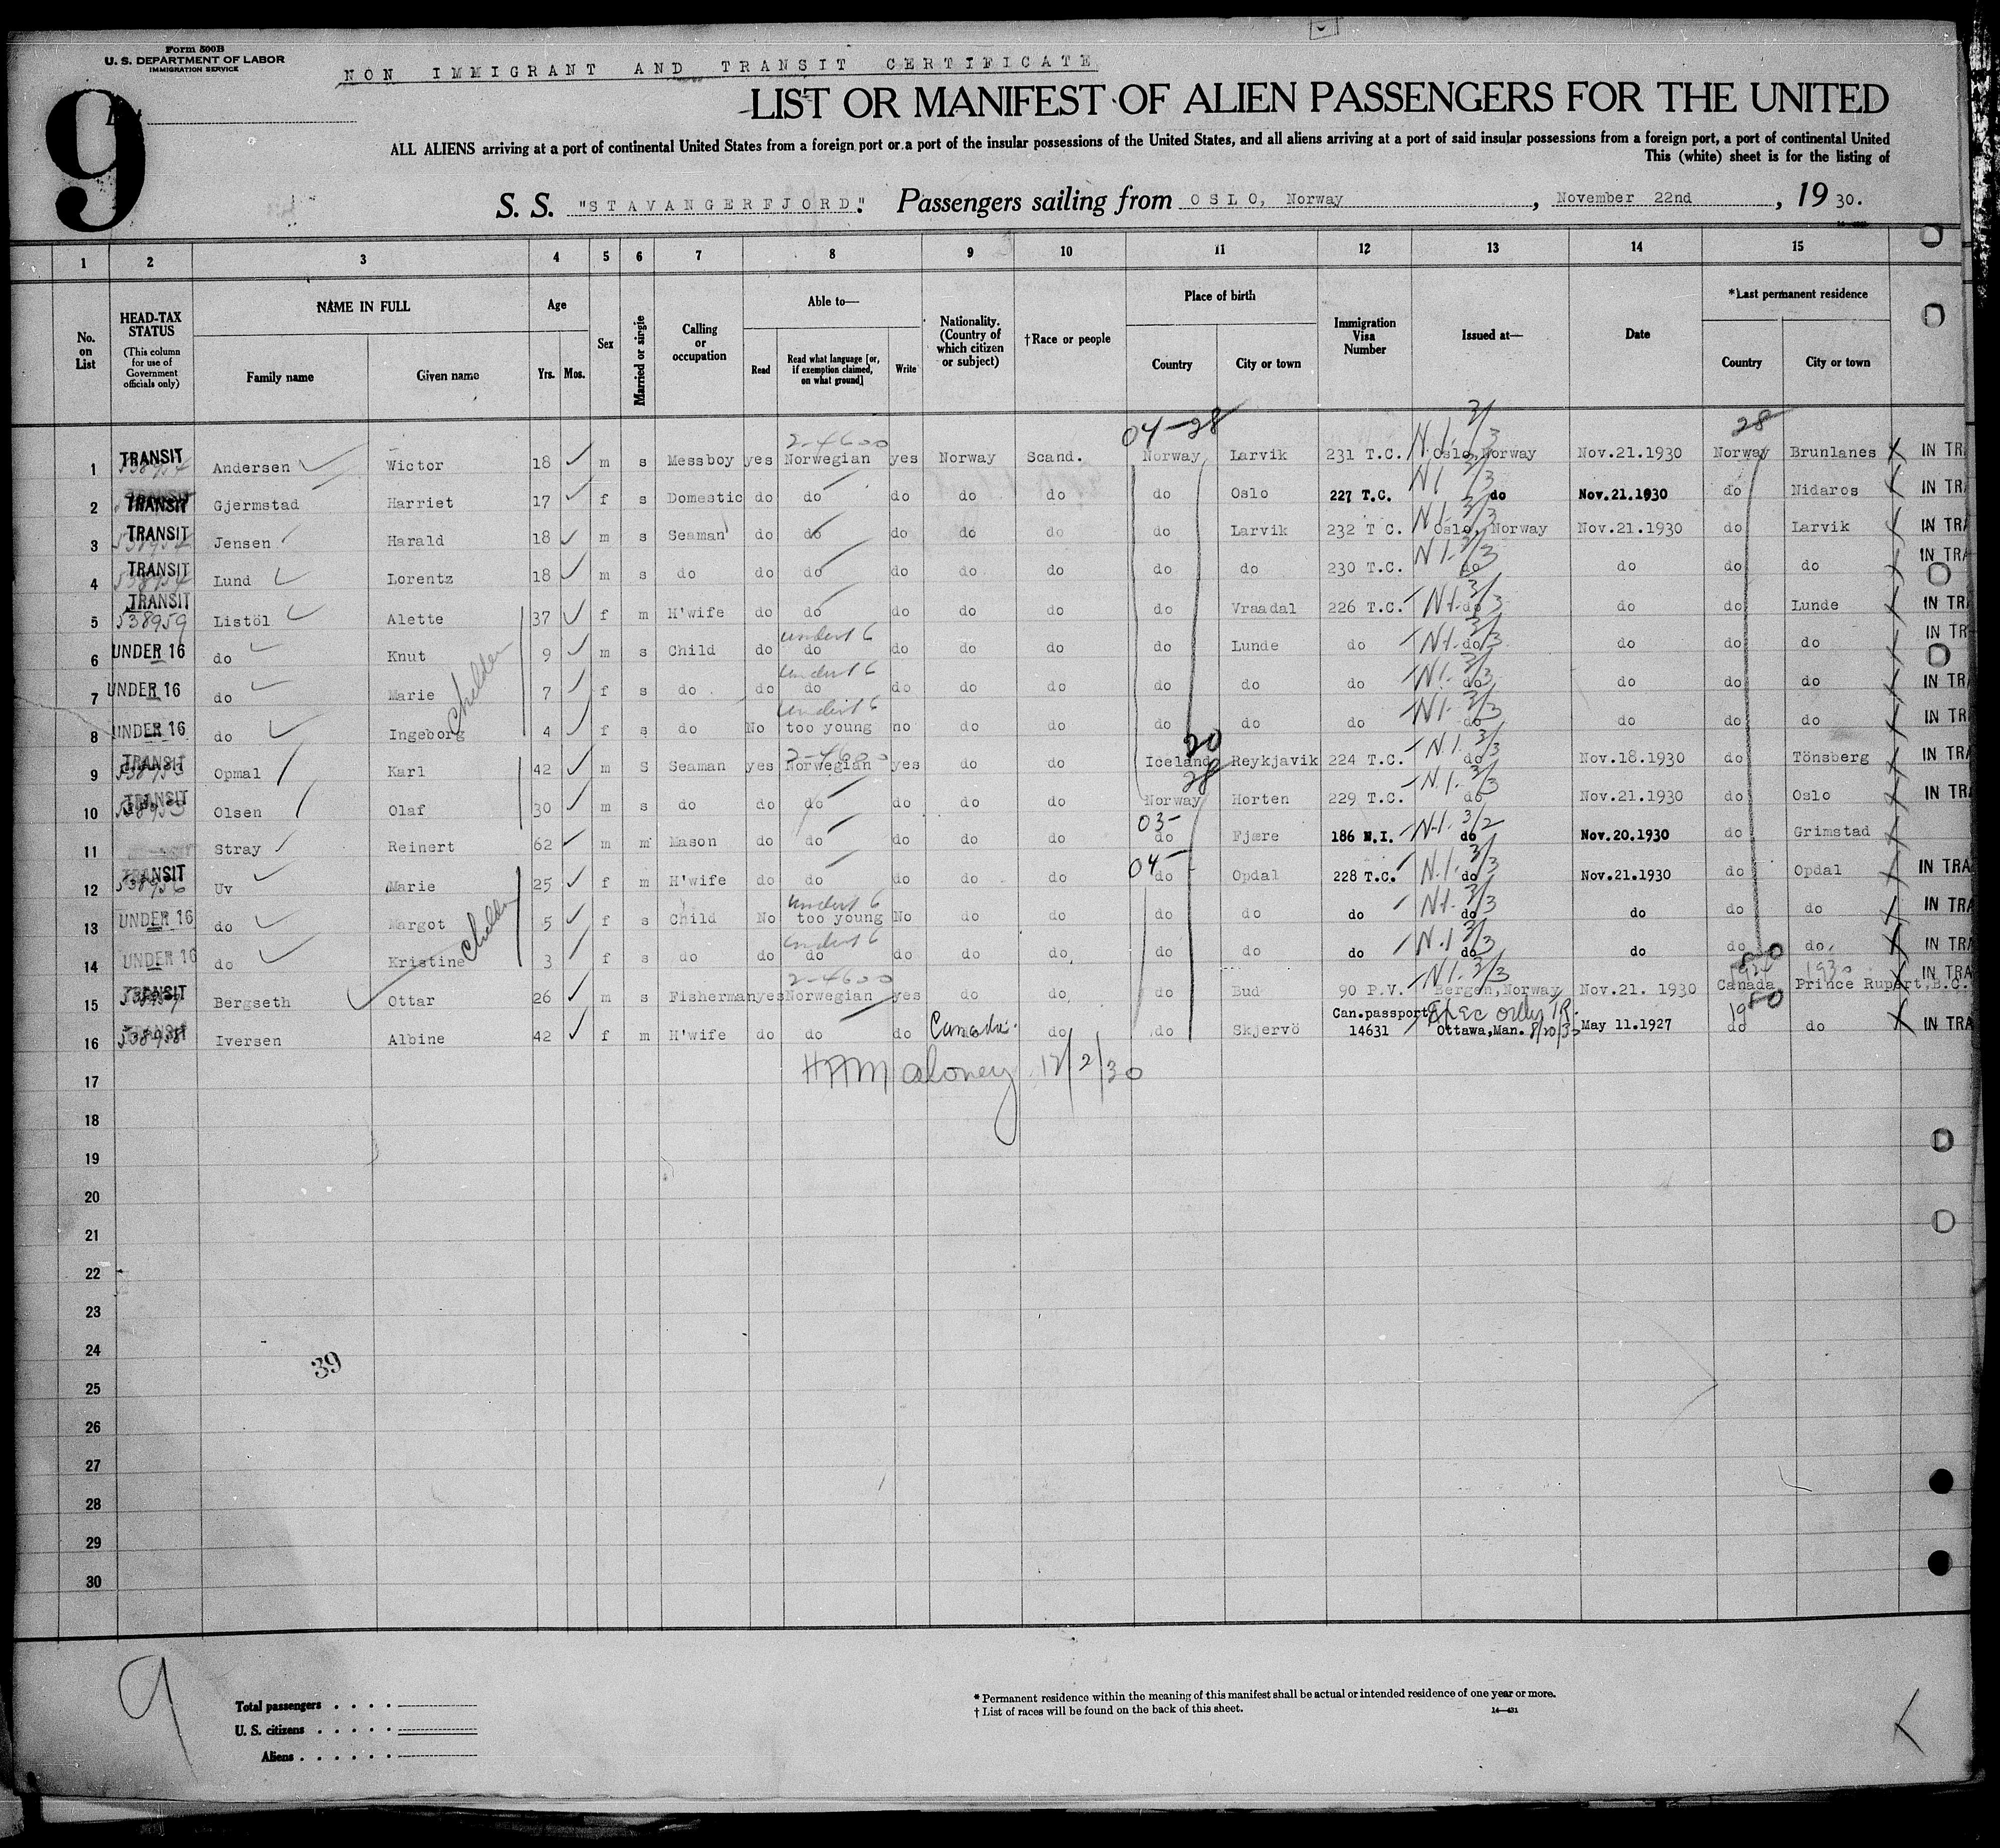 Form 500B
U. S. DEPARTMENT OF LABOR
IMMIGRATION SERVICE
NON IMMIGRANT AND TRANSIT CERTIFICATE
9
LIST OR MANIFEST OF ALIEN PASSENGERS FOR THE UNITED
ALL ALIENS arriving at a port of continental United States from a foreign port or a port of the insular possessions of the United States, and all aliens arriving at a port of said insular possessions from a foreign port, a port of continental United
This (white) sheet is for the listing of
S. S. "STAVANGERFJORD". Passengers sailing from OSLO, Norway, November 22nd, 1930.
1 2 3 4 5 6 7 8 9 10 11 12 13 14 15
No. on List HEAD-TAX STATUS (This column for use of Government officials only) NAME IN FULL Family name Given name Age Yrs. Mos. Sex Married or single Calling or occupation Able to— Read Read what language [or, if exemption claimed, on what ground] Write Nationality. (Country of which citizen or subject) †Race or people Place of birth Country City or town Immigration Visa Number Issued at— Date *Last permanent residence Country City or town
04-28 3/ 28
2-4600
1 TRANSIT 538954 Andersen Wictor 18 m s Messboy yes Norwegian yes Norway Scand. Norway Larvik 231 T.C. N.I. 3/3 Oslo, Norway Nov.21.1930 Norway Brunlanes IN TR
2 TRANSIT Gjermstad Harriet 17 f s Domestic do do do do do do Oslo 227 T.C. NI 3/3 do Nov.21.1930 do Nidaros IN TRA
3 TRANSIT 538954 Jensen Harald 18 m s Seaman do do do do do do Larvik 232 T C. N.I. 3/3 Oslo, Norway Nov.21.1930 do Larvik IN TRA
4 TRANSIT 538954 Lund Lorentz 18 m s do do do do do do do do 230 T.C. N.I. 3/3 do do do do IN TRA
5 TRANSIT 538959 Listöl Alette 37 f m H'wife do do do do do do Vraadal 226 T.C. N.I. 3/3 do do do Lunde IN TRA
under 16
6 UNDER 16 do Knut 9 m s Child do do do do do do Lunde do N.I. 3/3 do do do do IN TR
under 16
7 UNDER 16 do Marie 7 f s do do do do do do do do do N.I. 3/3 do do do do IN TRA
Children
under 16
8 UNDER 16 do Ingeborg 4 f s do No too young no do do do do do N.I. 3/3 do do do do IN TRA
2-4600 20
9 TRANSIT 538953 Opmal Karl 42 m S Seaman yes Norwegian yes do do Iceland Reykjavik 224 T.C. N.I. 3/3 do Nov.18.1930 do Tönsberg IN TRA
28
10 TRANSIT 538953 Olsen Olaf 30 m s do do do do do do Norway Horten 229 T.C. N.I. 3/3 do Nov.21.1930 do Oslo IN TRA
03-
11 Stray Reinert 62 m m Mason do do do do do do Fjære 186 N.I. N.I. 3/2 do Nov.20.1930 do Grimstad
04-
12 TRANSIT 538956 Uv Marie 25 f m H'wife do do do do do do Opdal 228 T.C. N.I. 3/3 do Nov.21.1930 do Opdal IN TRA
under 16
13 UNDER 16 do Margot 5 f s Child No too young No do do do do do N.I. 3/3 do do do do IN TRA
Children
under 16
14 UNDER 16 do Kristine 3 f s do do do do do do do do do N.I. 3/3 do do do do, IN TRA
2-4600 1930
15 TRANSIT 538957 Bergseth Ottar 26 m s Fisherman yes Norwegian yes do do, do Bud 90 P.V. N.I. 3/3 Bergen, Norway Nov.21. 1930 Canada Prince Rupert, B.C. IN TRA
16 TRANSIT 538958 Iversen Albine 42 f m H'wife do do do Canada. do do Skjervö Can.passport 14631 Ottawa, Man. 8/20/30 May 11.1927 do do IN TRA
HAMaloney 12/2/30
17
18
19
20
21
22
23
24
39
25
26
27
28
29
30
9
Total passengers
U. S. citizens
Aliens
* Permanent residence within the meaning of this manifest shall be actual or intended residence of one year or more.
† List of races will be found on the back of this sheet.
14—431